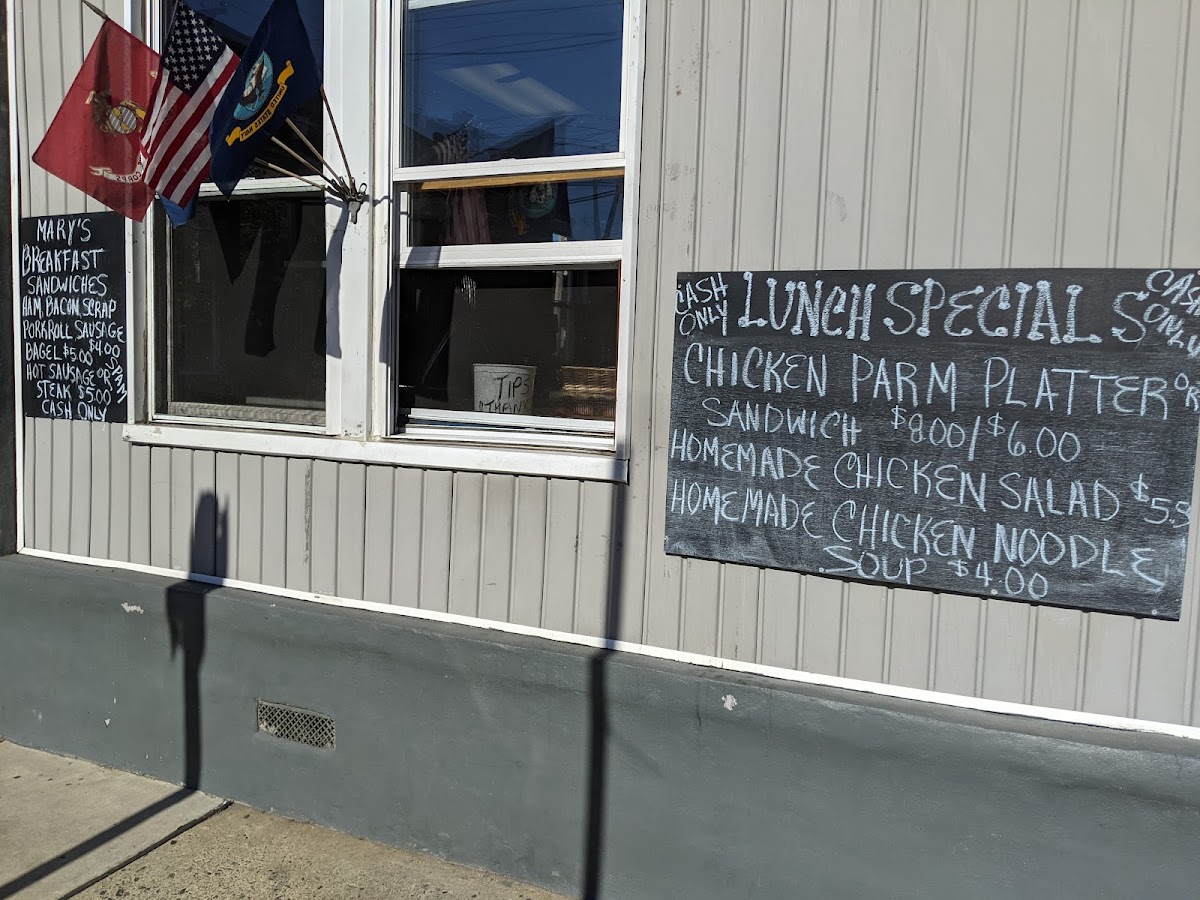 MARY'S
BREAKFAST
SANDWICHES
HAM, BACON, SCRAP
PORKROLL, SAUSAGE
BAGEL $5.00 $4.00
HOT SAUSAGE OR
STEAK $5.00
CASH ONLY
CORPS
TIPS
CASH
ONLY
LUNCH SPECIALS
CASH
ONLY
CHICKEN PARM PLATTER OR
SANDWICH $8.00/$6.00
HOMEMADE CHICKEN SALAD
HOMEMADE CHICKEN NOODLE
SOUP $4.00